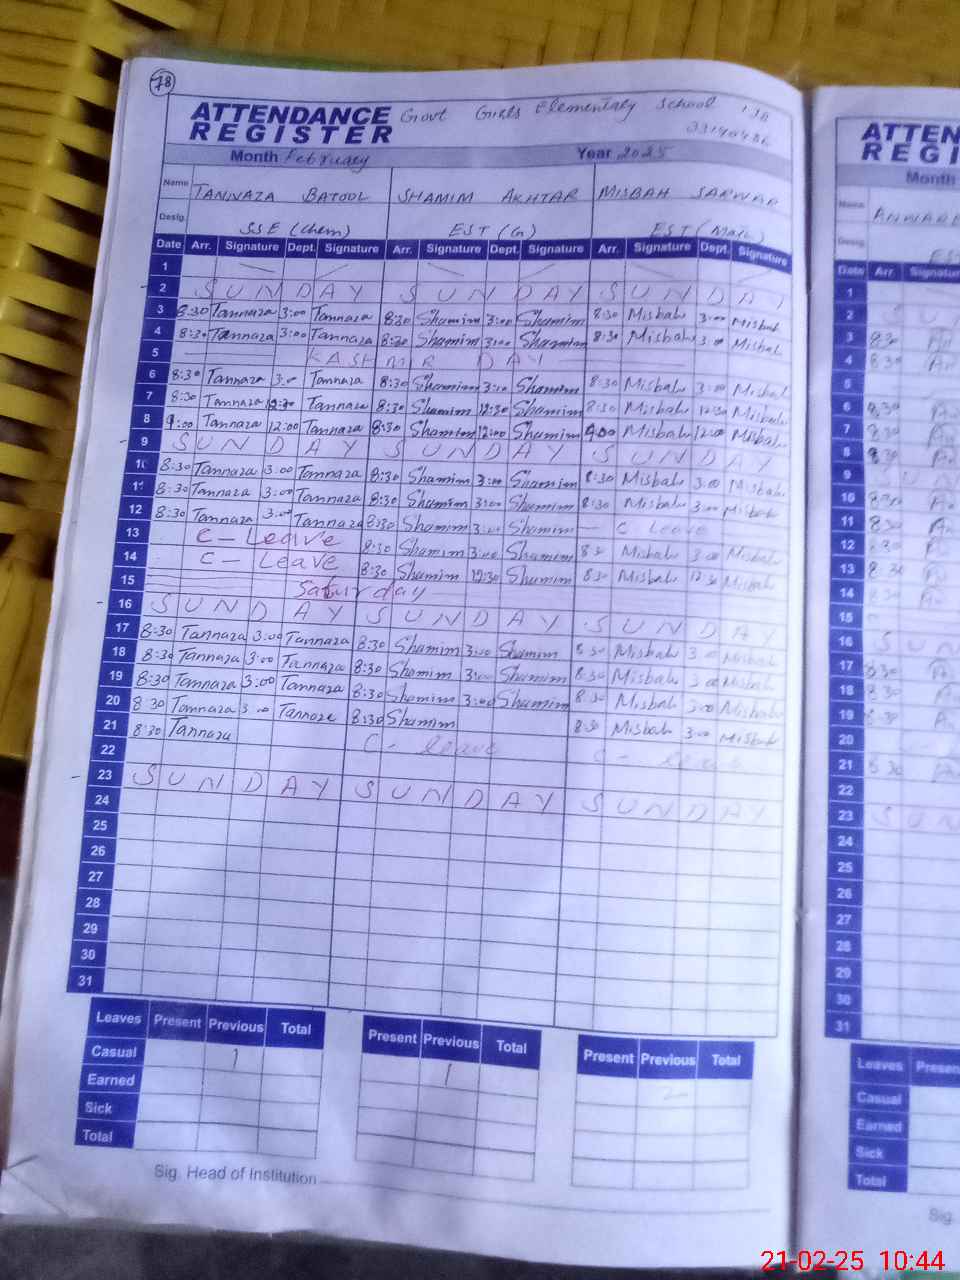 78
ATTENDANCE REGISTER Govt Girls Elementary School
Month February Year 2025
Name TANNAZA BATOOL SHAMIM AKHTAR MISBAH SARWAR
Desig. SSE (Chem) EST (G) EST (Math)
Date Arr. Signature Dept. Signature Arr. Signature Dept. Signature Arr. Signature Dept. Signature
1
2 SUNDAY SUNDAY SUNDAY
3 8:30 Tannaza 3:00 Tannaza 8:30 Shamim 3:00 Shamim 8:30 Misbah 3:00 Misbah
4 8:30 Tannaza 3:00 Tannaza 8:30 Shamim 3:00 Shamim 8:30 Misbah 3:00 Misbah
5 KASHMIR DAY
6 8:30 Tannaza 3:00 Tannaza 8:30 Shamim 3:00 Shamim 8:30 Misbah 3:00 Misbah
7 8:30 Tannaza 12:30 Tannaza 8:30 Shamim 12:30 Shamim 8:30 Misbah 12:30 Misbah
8 9:00 Tannaza 12:00 Tannaza 8:30 Shamim 12:00 Shamim 9:00 Misbah 12:00 Misbah
9 SUNDAY SUNDAY SUNDAY
10 8:30 Tannaza 3:00 Tannaza 8:30 Shamim 3:00 Shamim 8:30 Misbah 3:00 Misbah
11 8:30 Tannaza 3:00 Tannaza 8:30 Shamim 3:00 Shamim 8:30 Misbah 3:00 Misbah
12 8:30 Tannaza 3:00 Tannaza 8:30 Shamim 3:00 Shamim — C Leave
13 C - Leave 8:30 Shamim 3:00 Shamim 8:30 Misbah 3:00 Misbah
14 C - Leave 8:30 Shamim 12:30 Shamim 8:30 Misbah 12:30 Misbah
15 Saturday
16 SUNDAY SUNDAY SUNDAY
17 8:30 Tannaza 3:00 Tannaza 8:30 Shamim 3:00 Shamim 8:30 Misbah 3:00 Misbah
18 8:30 Tannaza 3:00 Tannaza 8:30 Shamim 3:00 Shamim 8:30 Misbah 3:00 Misbah
19 8:30 Tannaza 3:00 Tannaza 8:30 Shamim 3:00 Shamim 8:30 Misbah 3:00 Misbah
20 8:30 Tannaza 3:00 Tannaza 8:30 Shamim 8:30 Misbah 3:00 Misbah
21 8:30 Tannaza C - leave C - leave
22
23 SUNDAY SUNDAY SUNDAY
24
25
26
27
28
29
30
31
Leaves Present Previous Total Present Previous Total Present Previous Total
Casual 1 1 2
Earned
Sick
Total
Sig. Head of Institution
ATTEN
REGI
Month
Name
Desig.
Date Arr. Signature
1
2
3 8:30
4 8:30
5
6 8:30
7 8:30
8 8:30
9
10
11 8:30
12 8:30
13 8:30
14 8:30
15
16
17 8:30
18 8:30
19 8:30
20
21 8:30
22
23 SUN
24
25
26
27
28
29
30
31
Leaves Presen
Casual
Earned
Sick
Total
Sig.
21-02-25 10:44